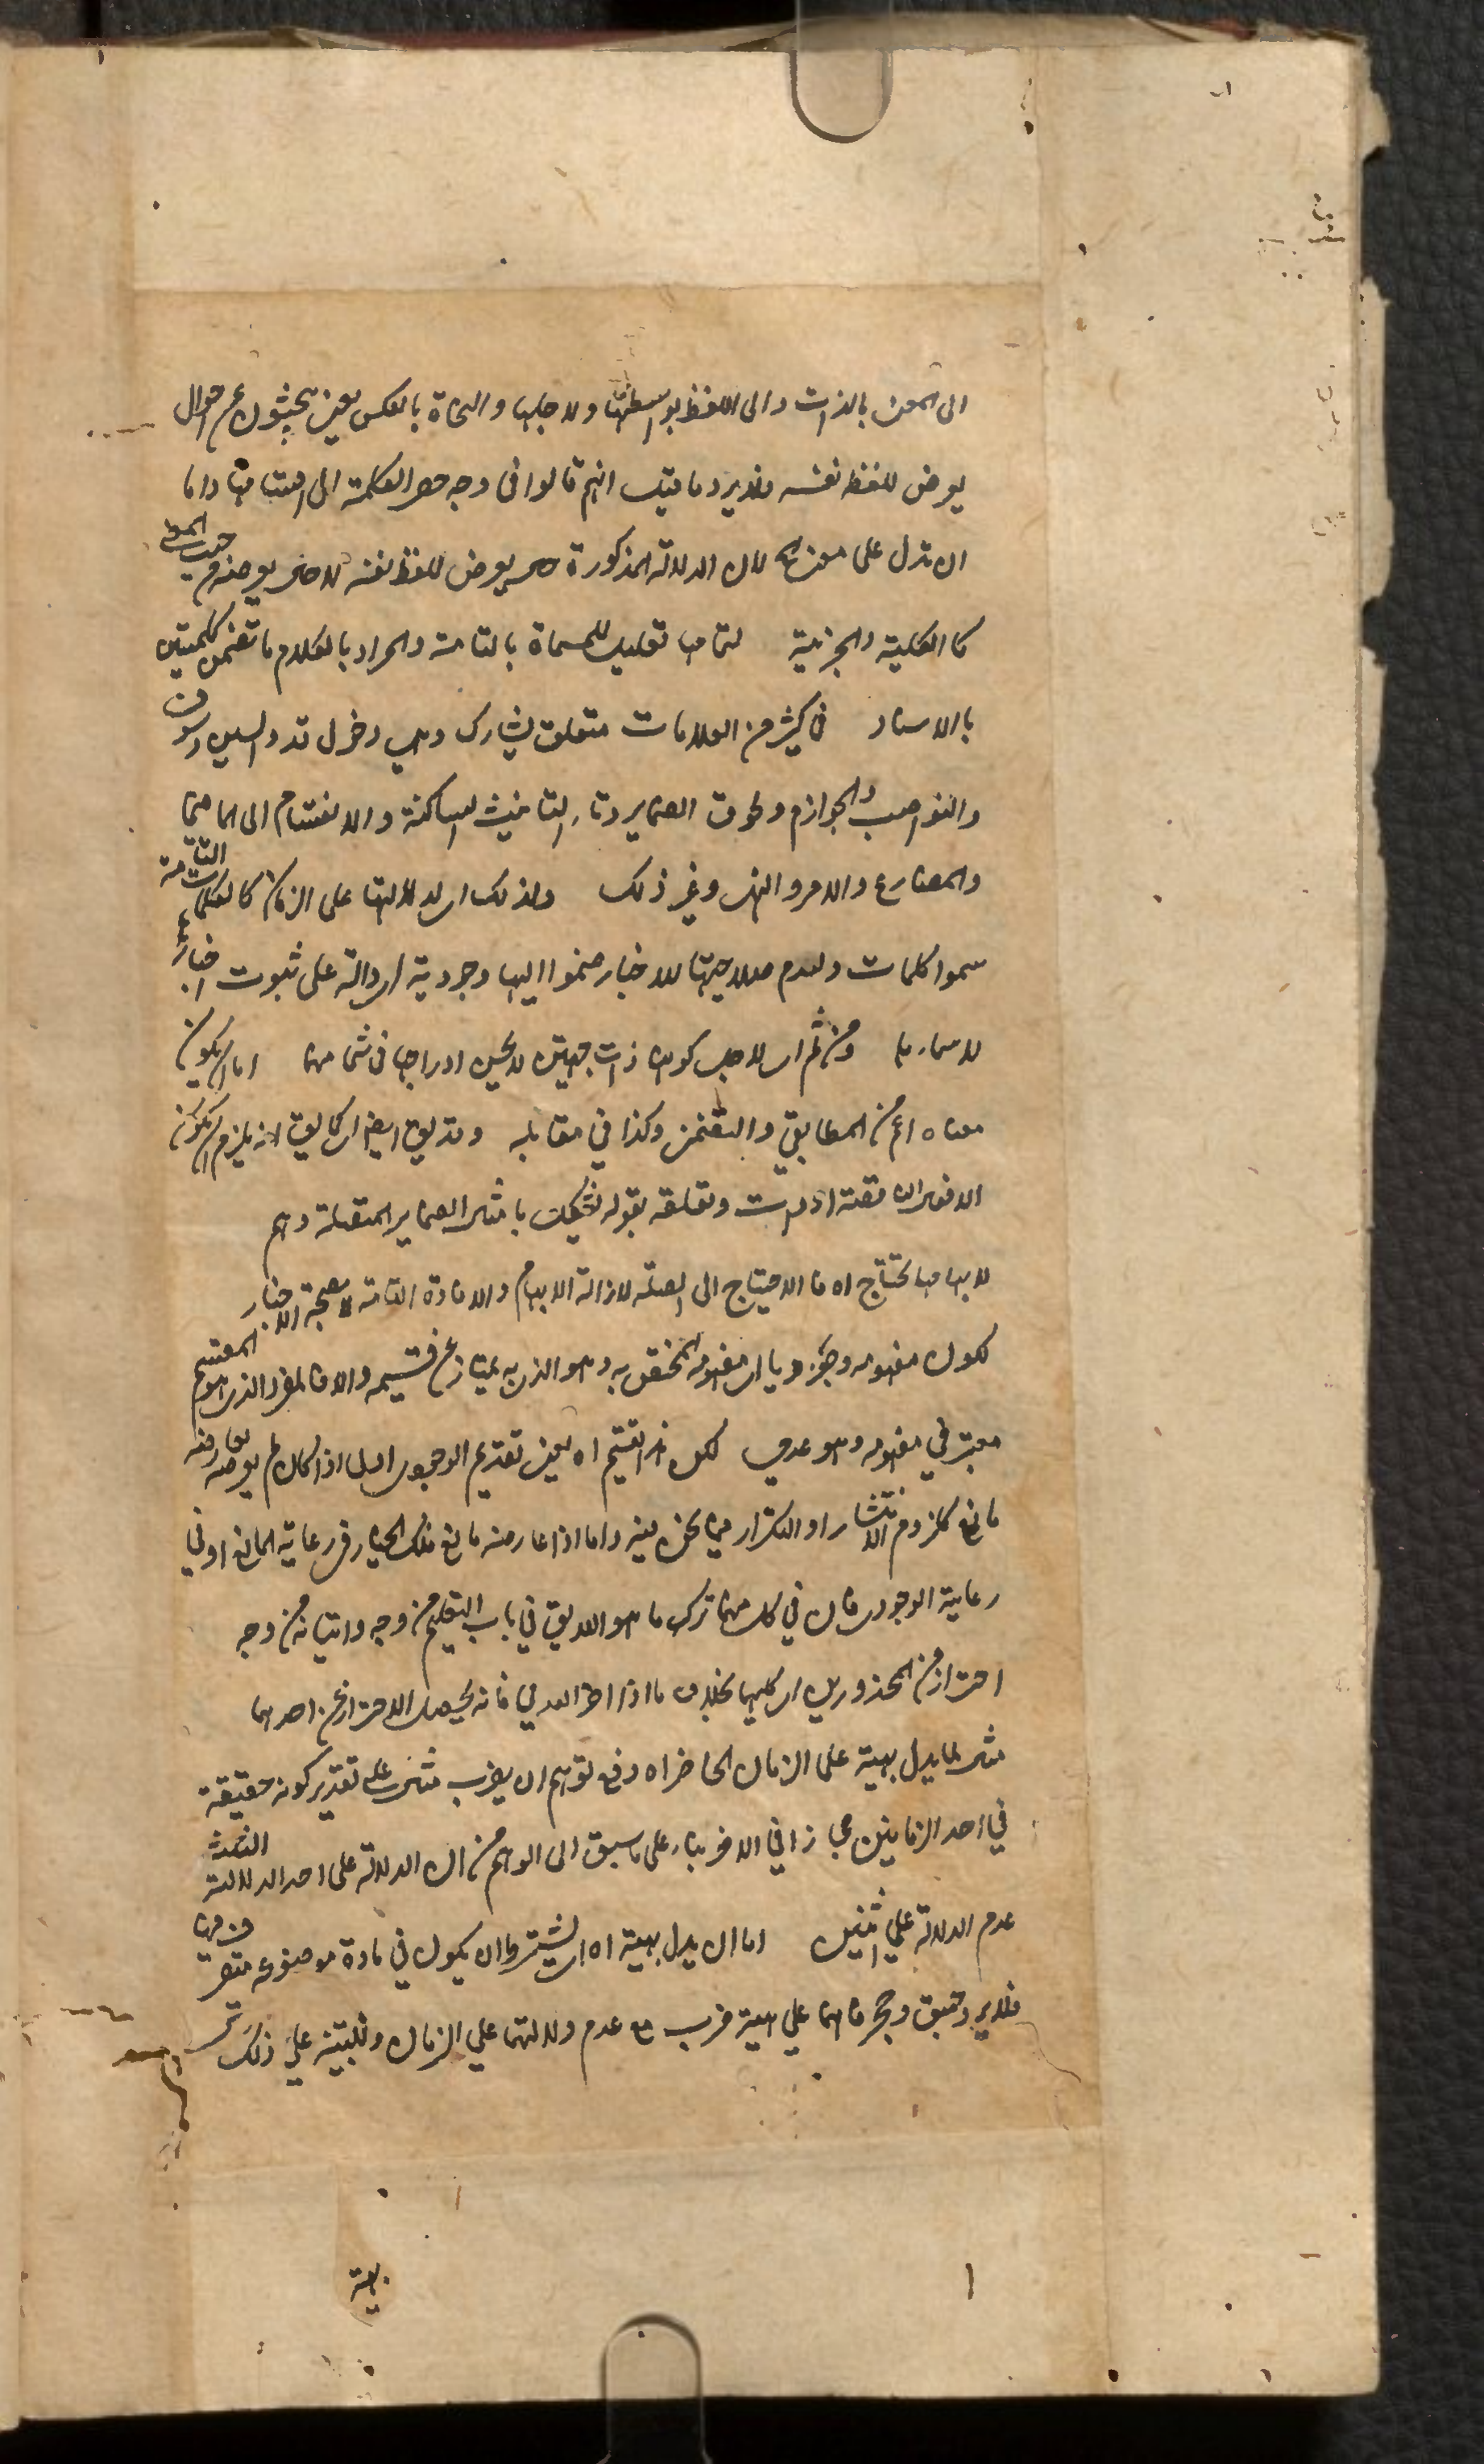 الى المعنى بالذات والى اللفظ بواسطتها ولاجلها والنحاة بالعكس يعنى يبحثون عن احوال
يعرض للفظ نفسه فلا يرد ما قيل انهم قالوا فى وجه حصر الكلمة الى اقسامها اما
ان تدل على معنى الخ لان الدلالة المذكورة حال يعرض للفظ نفسه لا حال يعرضه من حيث المعنى
كالكلية والجزئية لتمامها تعليل للمسماة بالتامة والمراد بالكلام ما تضمن كلمتين
بالاسناد فى كثير من العلامات متعلق يشارك وهى دخول قد والسين وسوف
والنواصب والجوازم ولحوق الضماير وتاء التانيث الساكنة والانقسام الى الماضى
والمضارع والامر والنهى وغير ذلك ولذلك اى لدلالتها على الزمان كالكلمات التامة
سموا كلمات ولعدم صلاحيتها للاخبار ضموا اليها وجودية اى دالة على ثبوت اخبارها
لاسمائها ومن ثم اى لاجل كونها ذات جهتين لا يحسن ادراجها فى شىء منهما اما ان يكون
معناه اعم من المطابقى والتضمنى وكذا فى مقابله وقد يقال ايضا كما يقال انه يلزم ان يكون
الافعال الناقصة ادوات وتعلقه بقوله تشكل بامثال الضماير المتصلة وهم
لابهامها تحتاج اه فالاحتياج الى الصلة لازالة الابهام والافادة التامة لا لصحة الاخبار
لكون مفهومه وجوديا اى مفهومه المختص به وهو الذى به يمتاز عن قسيمه والا فالمفرد الذى هو المقسم
معتبر فى مفهومه وهو عدمى لكن هذا التقسيم اه يعنى تقديم الوجودى اصل اذا كان لم يعارضه
مانع كلزوم الانتشار او التكرار فيما نحن فيه واما اذا عارضه مانع فلك الخيار فى رعاية المانع او فى
رعاية الوجودى فان فى كل منهما ترك ما هو اللايق فى باب التعليم من وجه واتيانه من وجه
احتراز من المحذورين اى كليهما بخلاف ما اذا اخر العدمى فانه يحصل الاحتراز عن احدهما
مثال لما يدل بهيئة على الزمان الحاضر اه دفع توهم ان يضرب مثال على تقدير كونه حقيقة
فى احد الزمانين مجازا فى الاخر بناء على ما سبق الى الوهم من ان الدلالة على احد الدلالة الثلث
عدم الدلالة على اثنين اما ان يدل بهيئة اه اى بشرط ان يكون فى مادة موضوعة متصرف فيها
فلا يرد جسق وحجر فانهما على هيئة ضرب مع عدم دلالتهما على الزمان وللتنبيه على ذلك
بهيئة